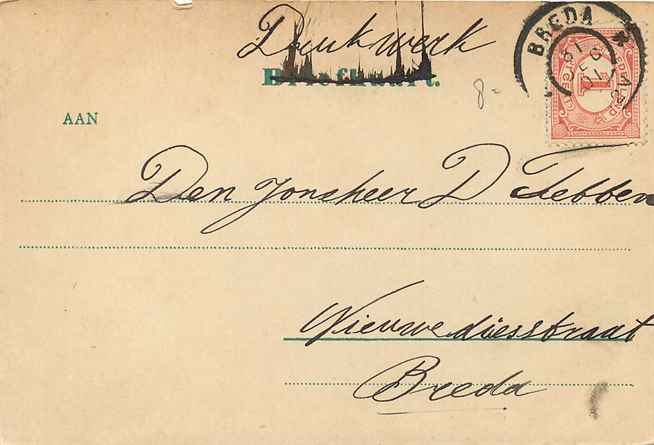 Drukwerk
Briefkaart.
BREDA
8-
AAN
1
Den Jonkheer D Tebben
Nieuwe diesstraat
Breda